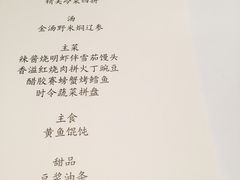 精美冷菜四拼
汤
金汤野米焖辽参
主菜
辣酱烧明虾伴雪茄馒头
香溢红烧肉拼火丁豌豆
醋胶赛螃蟹烤鳕鱼
时令蔬菜拼盘
主食
黄鱼馄饨
甜品
豆浆油条